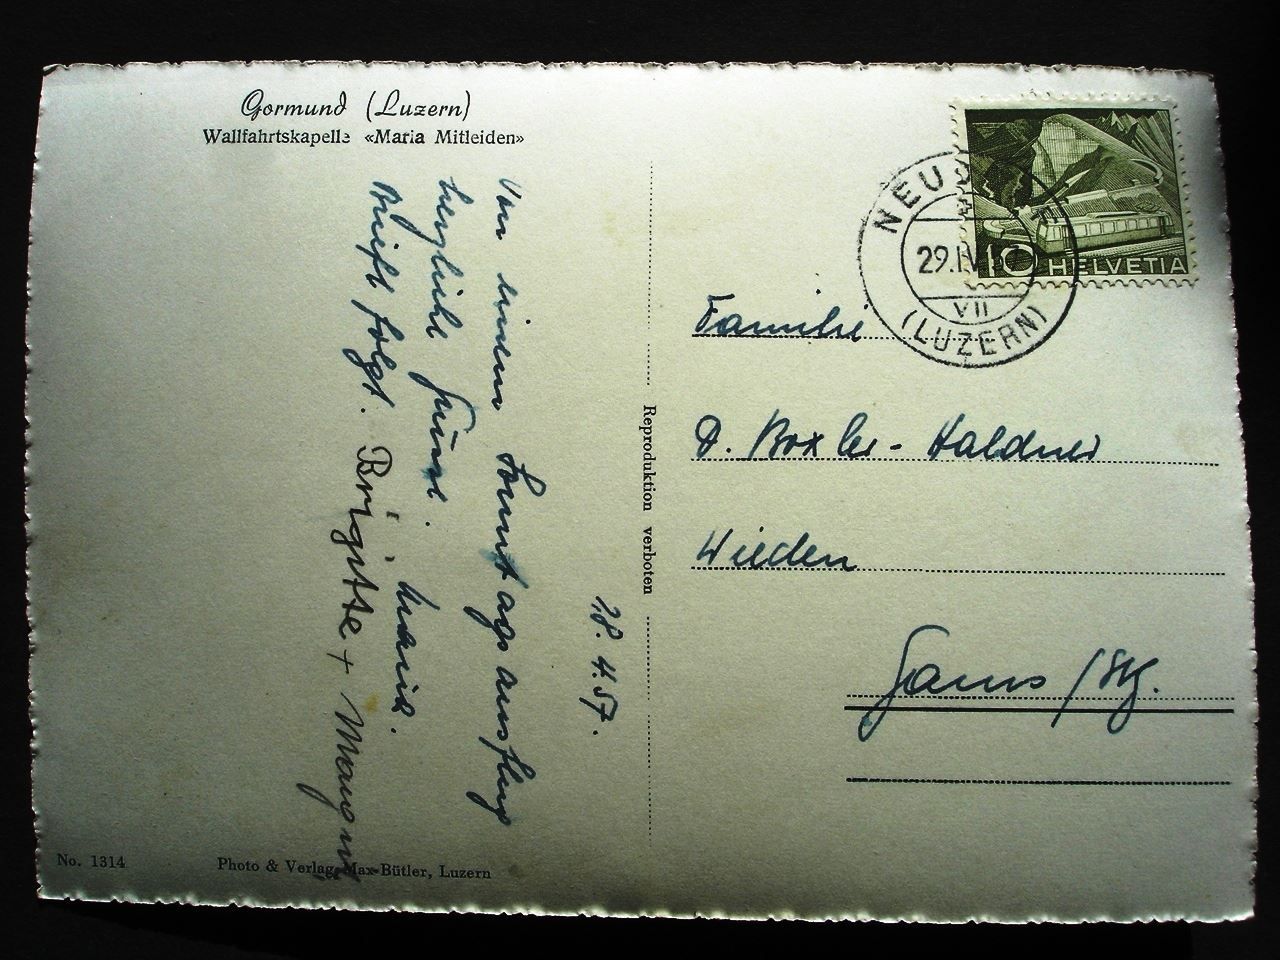 Gormund (Luzern)
Wallfahrtskapelle «Maria Mitleiden»
28. 4. 57.
Von einem Sonntagsausflug
herzliche Grüsse.
Brief folgt. Marie.
Brigitte +
Reproduktion verboten
No. 1314
Photo & Verlag Max Bütler, Luzern
29.IV
VII
(LUZERN)
10 HELVETIA
Familie
D. Boxler-Haldner
Wieden
Gams / Stg.